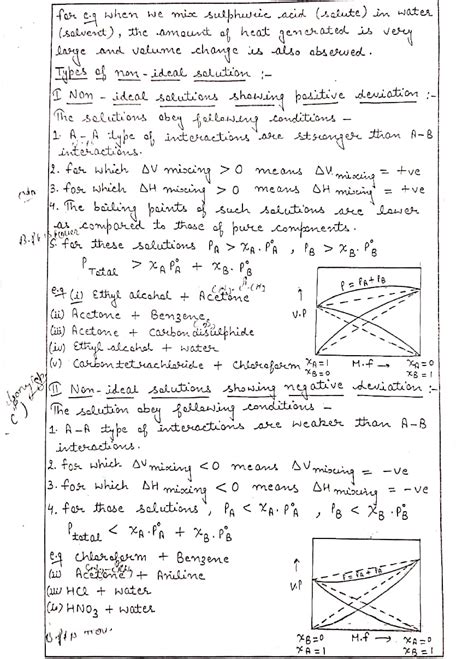 for e.g when we mix sulphuric acid (solute) in water
(solvent), the amount of heat generated is very
large and volume change is also observed.
Types of non-ideal solution :-
I Non-ideal solutions showing positive deviation :-
The solutions obey following conditions –
1. A-A type of interactions are stronger than A-B
interactions.
2. for which ΔV mixing > 0 means ΔV mixing = +ve
3. for which ΔH mixing > 0 means ΔH mixing = +ve
4. The boiling points of such solutions are lower
as compared to those of pure components.
5. for these solutions PA > xA.P°A , PB > xB.P°B
P Total > xA P°A + xB.P°B
e.g (i) Ethyl alcohol + Acetone
(ii) Acetone + Benzene
(iii) Acetone + Carbondisulphide
(iv) Ethyl alcohol + water
(v) Carbontetrachloride + Chloroform
↑
V.P
P = PA + PB
xA=1 M.f → xA=0
xB=0 xB=1
II Non-ideal solutions showing negative deviation :-
The solution obey following conditions –
1. A-A type of interactions are weaker than A-B
interactions.
2. for which ΔV mixing < 0 means ΔV mixing = -ve
3. for which ΔH mixing < 0 means ΔH mixing = -ve
4. for those solutions , PA < xA.P°A , PB < xB.P°B
P total < xA.P°A + xB.P°B
e.g Chloroform + Benzene
(ii) Acetone + Aniline
(iii) HCl + water
(iv) HNO3 + water
↑
V.P
P = PA + PB
xB=0 M.f → xA=0
xA=1 xB=1